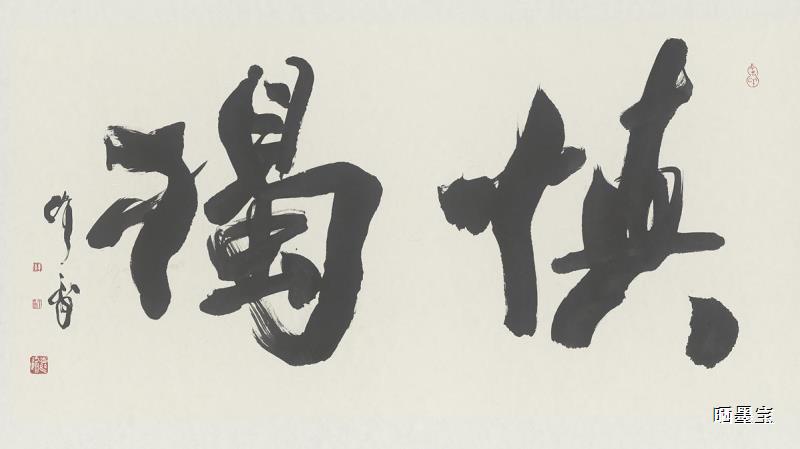 慎獨
晒墨宝